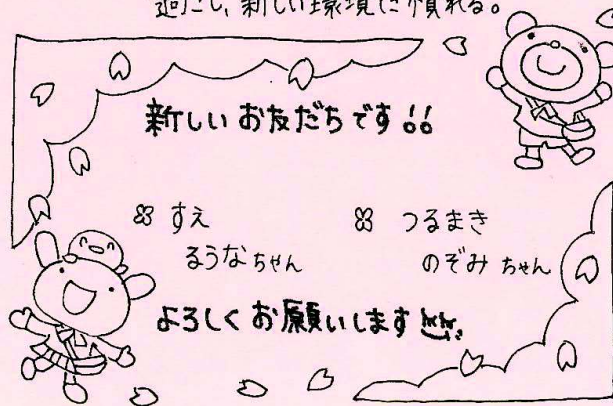 過ごし、新しい環境に慣れる。
新しいお友だちです!!
すえ
るうなちゃん
つるまき
のぞみちゃん
よろしくお願いします